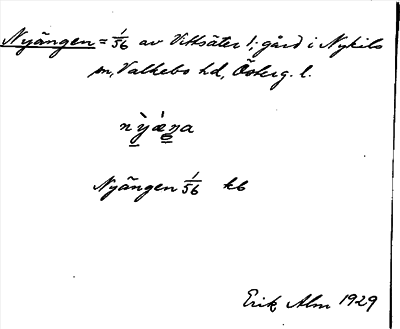 Nyängen = 1/56 av Vittsäter 1; gård i Nykils
sn, Valkebo hd, Österg. l.
nỳæ̀ŋa
Nyängen 1/56 kb
Erik Alm 1929